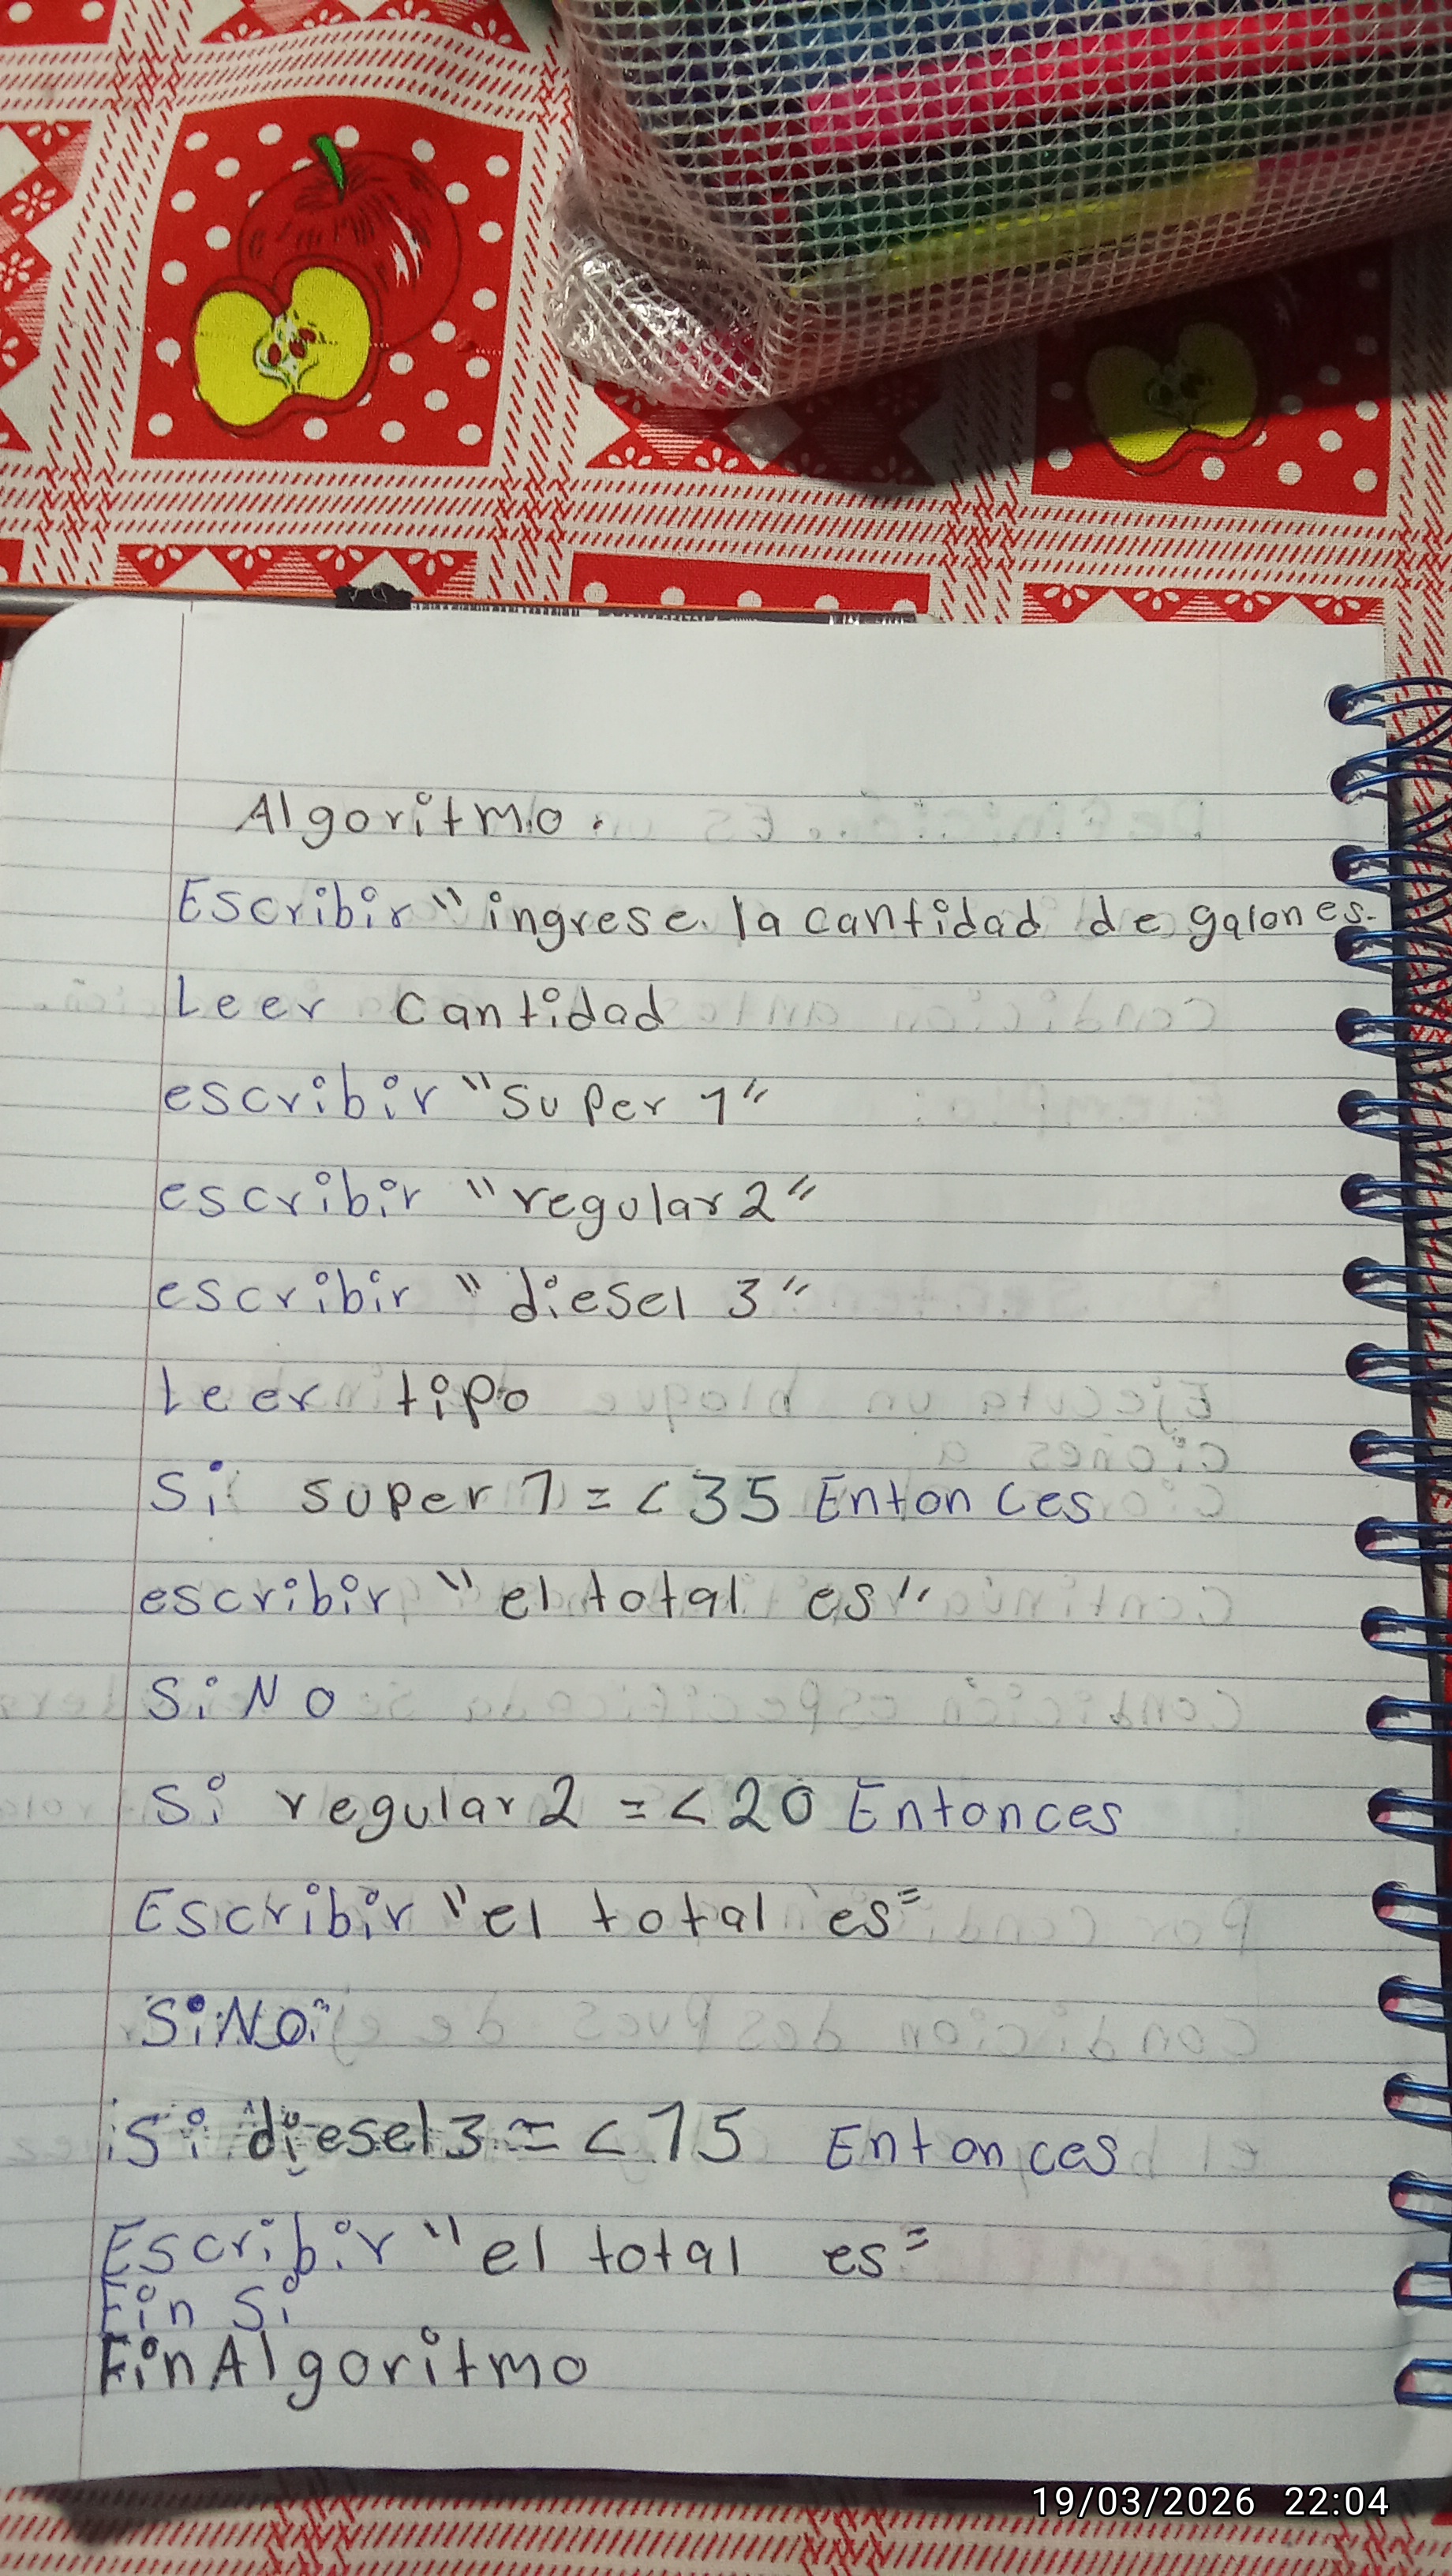 Algoritmo.
Escribir "ingrese la cantidad de galones.
Leer cantidad
escribir "super 1"
escribir "regular 2"
escribir "diesel 3"
Leer tipo
Si super 1 = < 35 Entonces
escribir "el total es"
SiNo
Si regular 2 = < 20 Entonces
Escribir "el total es"
SiNo
Si diesel 3 = < 15 Entonces
Escribir "el total es"
Fin Si
Fin Algoritmo
19/03/2026 22:04